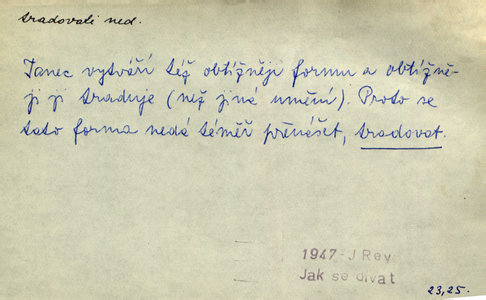 tradovati ned.
Tanec vytváří též obtížněji formu a obtížně-
ji ji traduje (než jiná umění). Proto se
tato forma nedá téměř přenášet, tradovat.
1947-J Rey
Jak se dívat
23,25.